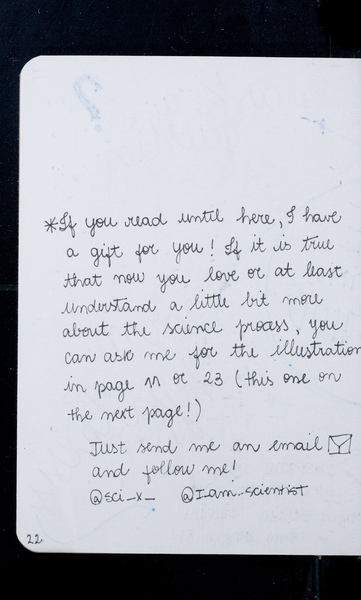 *If you read until here, I have
a gift for you! If it is true
that now you love or at least
understand a little bit more
about the science process, you
can ask me for the illustration
in page 11 or 23 (this one on
the next page!)
Just send me an email
and follow me!
@sci_x_ @I_am_scientist
22